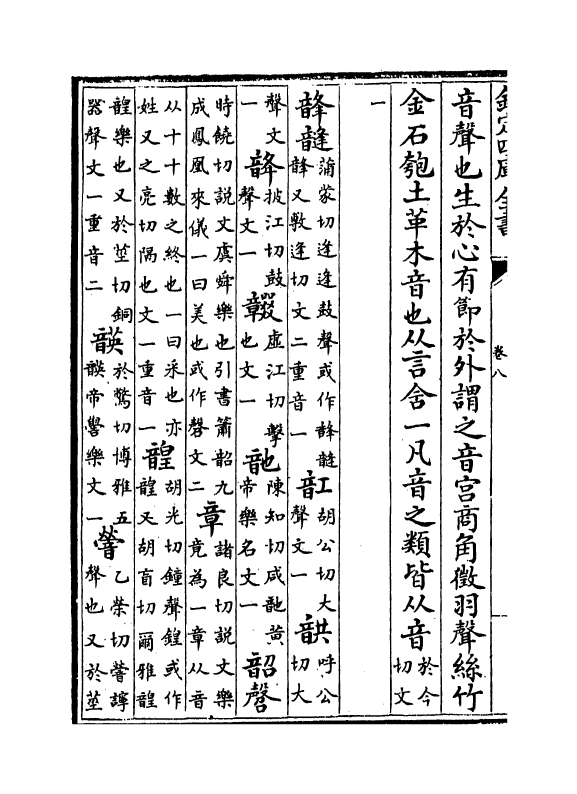 欽定四庫全書 卷八
音聲也生於心有節於外謂之音宫商角徵羽聲絲竹
金石匏土革木音也从言含一凡音之類皆从音於今切文
一
韸韼蒲蒙切逄逄鼓聲或作韸韼韸又敷逄切文二重音一䪦胡公切大聲文一䪫呼公切大
聲文一披江切鼓聲文一虛江切擊也文一䪧陳知切咸䪧黃帝樂名文一韶磬
時饒切説文虞舜樂也引書簫韶九成鳳凰來儀一曰美也或作磬文二章諸良切説文樂竟為一章从音
从十十數之終也一曰采也亦姓又之亮切隔也文一重音一韹胡光切鍾聲鍠或作韹又胡盲切爾雅韹
韹樂也又於莖切銅器聲文一重音二韺於驚切博雅五韺帝嚳樂文一乙榮切聲也又於莖